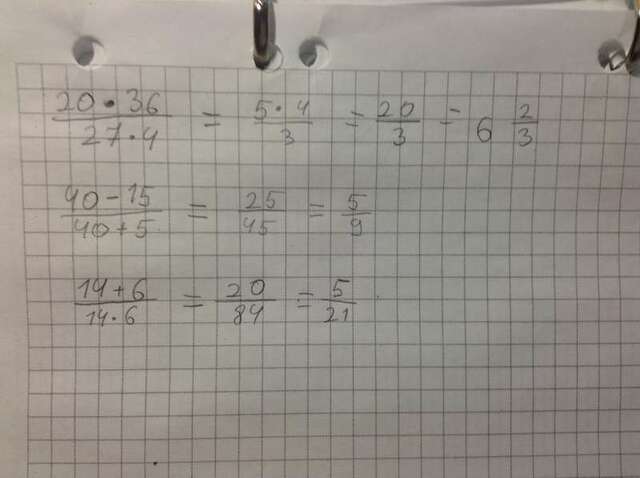 20 · 36 / 27 · 4 = 5 · 4 / 3 = 20 / 3 = 6 2/3
40 - 15 / 40 + 5 = 25 / 45 = 5 / 9
14 + 6 / 14 · 6 = 20 / 84 = 5 / 21